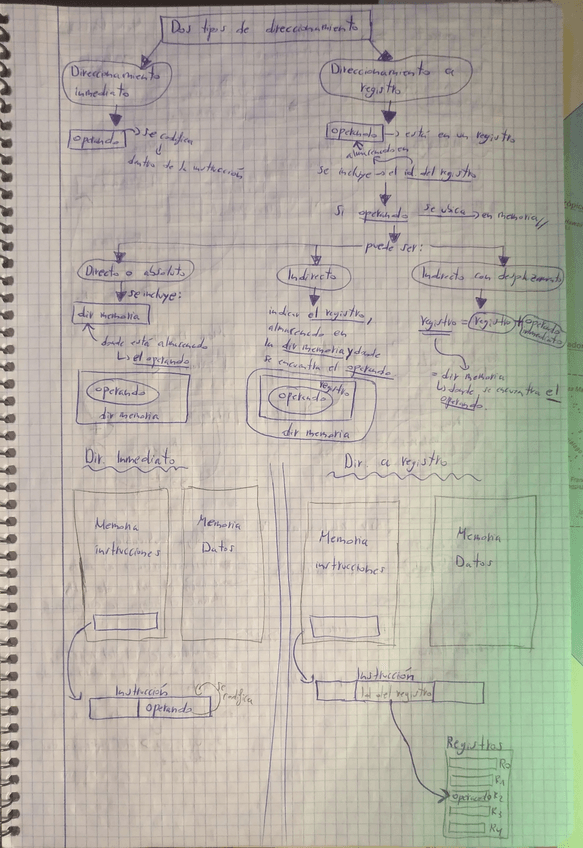 Dos tipos de direccionamiento
Direccionamiento
inmediato
operando → se codifica
dentro de la instrucción
Direccionamiento a
registro
operando → está en un registro
almacenado en
se incluye → el id del registro
Si operando se ubica → en memoria //
puede ser:
Directo o absoluto
se incluye:
dir memoria
donde está almacenado
el operando
operando
dir memoria
Indirecto
indica el registro,
almacenado en
la dir memoria y donde
se encuentra el operando
registro
operando
dir memoria
Indirecto con desplazamiento
registro = registro + operando
= dir memoria
donde se encuentra el
operando
Dir Inmediato
Memoria
instrucciones
Memoria
Datos
Instrucción
operando
se
codifica
Dir a registro
Memoria
instrucciones
Memoria
Datos
Instrucción
Id del registro
Registros
R0
R1
operando R2
R3
R4